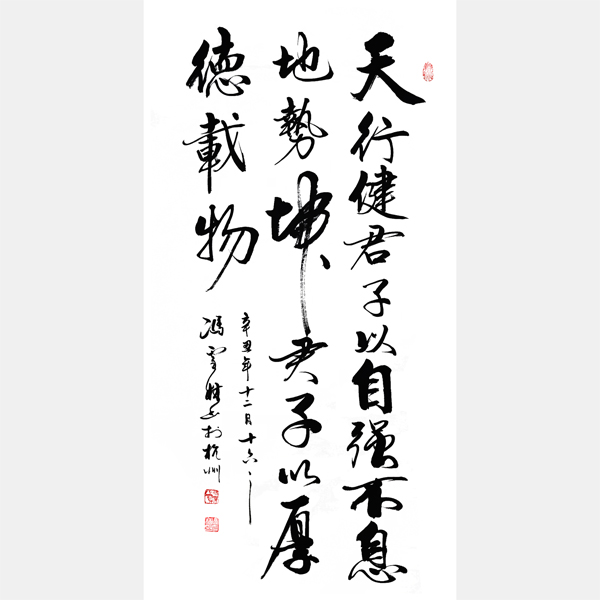 天行健君子以自强不息
地勢坤君子以厚
德載物
辛丑年十二月十六日
馮雪林書於杭州